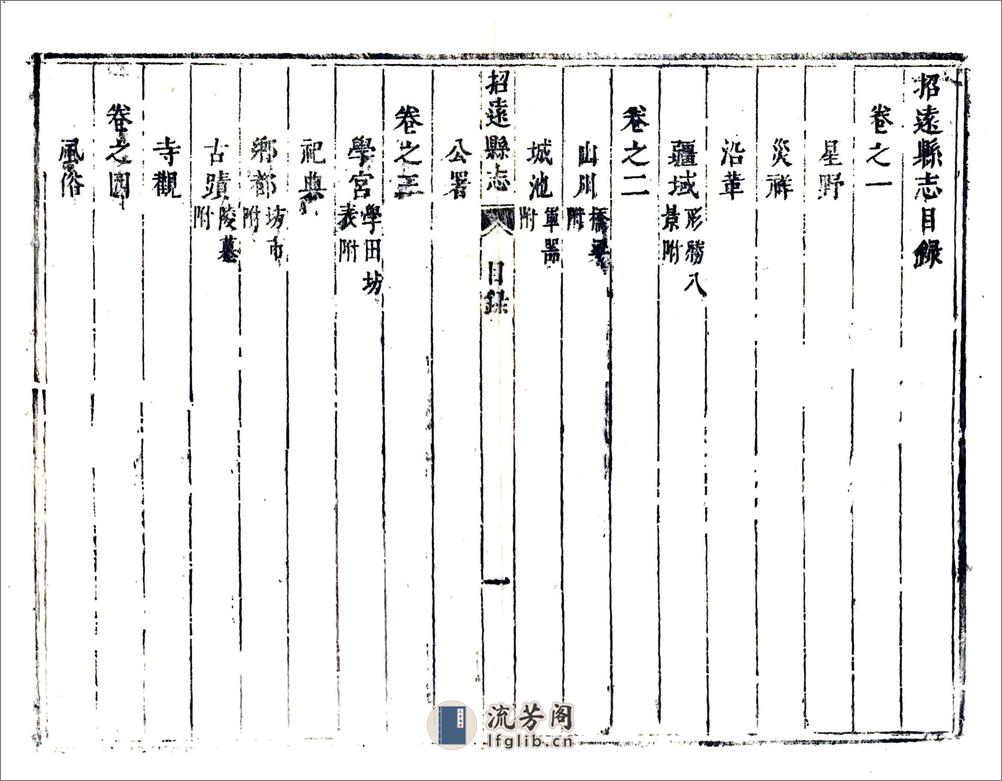 招遠縣志目錄
卷之一
星野
災祥
沿革
疆域形勝八景附
卷之二
山川橋梁附
城池軍器附
招遠縣志 目錄 一
公署
卷之三
學宮學田坊表附
祀典
鄉都坊市附
古蹟陵墓附
寺觀
卷之四
風俗
流芳阁
lfglib.cn